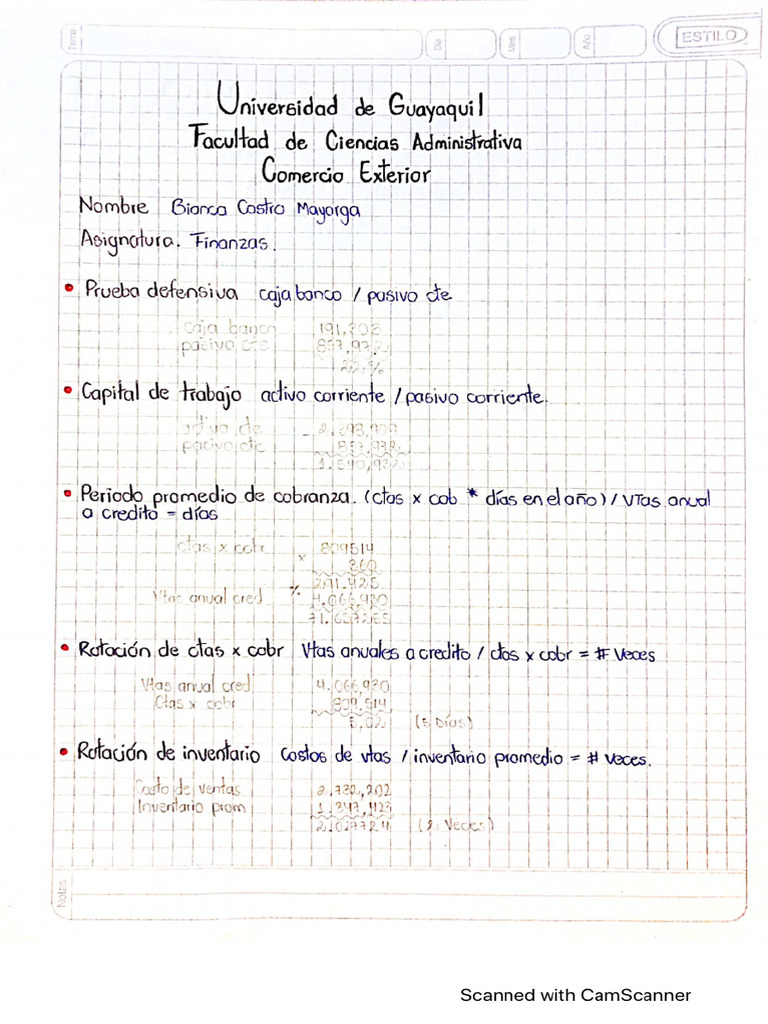 Tema
Día
Mes
Año
ESTILO
Universidad de Guayaquil
Facultad de Ciencias Administrativa
Comercio Exterior
Nombre Bianca Castro Mayorga
Asignatura. Finanzas.
• Prueba defensiva caja banco / pasivo cte
caja banco
pasivo cte
• Capital de trabajo activo corriente / pasivo corriente.
pasivo cte
• Periodo promedio de cobranza. (ctas x cob * días en el año) / VTas anual
a credito = días
ctas x cobr 809514
x 360
Vtas anual cred 4.066,930
• Rotación de ctas x cobr Vtas anuales a credito / ctas x cobr = # Veces
Vtas anual cred 4.066,930
Ctas x cobr 809,514
5,02 (5 Días)
• Rotación de inventario Costos de vtas / inventario promedio = # veces.
Costo de ventas 2.732,202
Inventario prom 1.347,423
(2 Veces)
Notas
Scanned with CamScanner